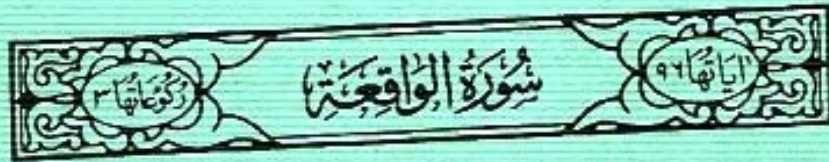 اٰيَاتُهَا ٩٦ سُوْرَةُ الْوَاقِعَةِ رُكُوْعَاتُهَا ٣